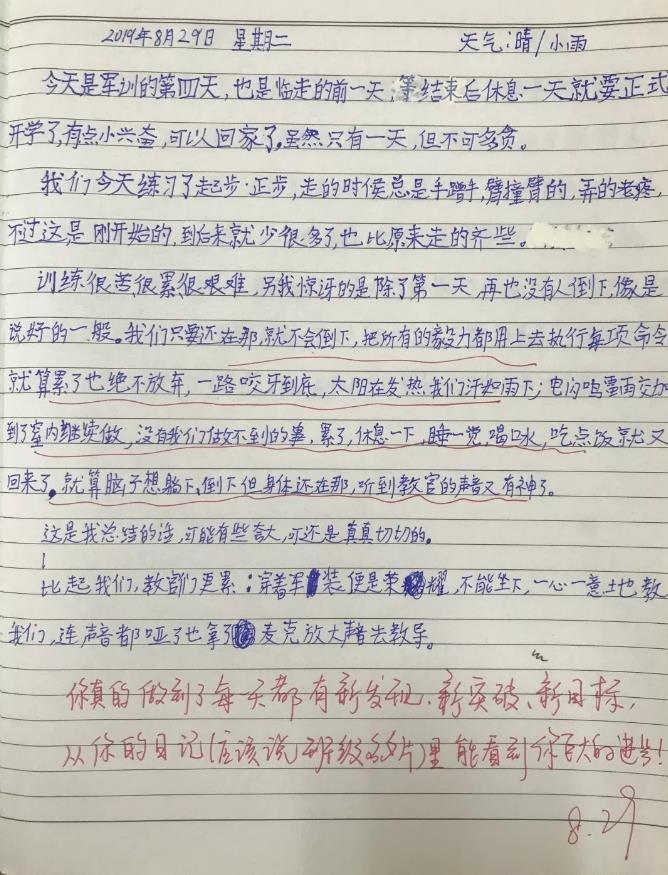 2019年8月29日 星期二 天气:晴/小雨
今天是军训的第四天,也是临走的前一天,等结束后休息一天就要正式
开学了,有点小兴奋,可以回家了。虽然只有一天,但不可多贪。
我们今天练习了起步·正步,走的时候总是手蹭手,臂撞臂的,弄的老疼,
不过这是刚开始的,到后来就少很多了,也比原来走的齐些。
训练很苦很累很艰难,另我惊讶的是除了第一天,再也没有人倒下,像是
说好的一般。我们只要还在那,就不会倒下,把所有的毅力都用上去执行每项命令
就算累了也绝不放弃,一路咬牙到底,太阳在发热我们汗如雨下;电闪鸣雷雨交加
到了室内继续做,没有我们做不到的事,累了,休息一下,睡一觉,喝口水,吃点饭就又
回来了。就算脑子想躺下,倒下但身体还在那,听到教官的声音又有神了。
这是我总结的话,可能有些夸大,可还是真真切切的。
比起我们,教官们更累:穿着军装便是荣耀,不能坐下,一心一意地教
我们,连声音都哑了也拿了麦克放大声音去教导。
你真的做到了每一天都有新发现、新突破、新目标,
从你的日记(应该说班级)里能看到你巨大的进步!
8.29